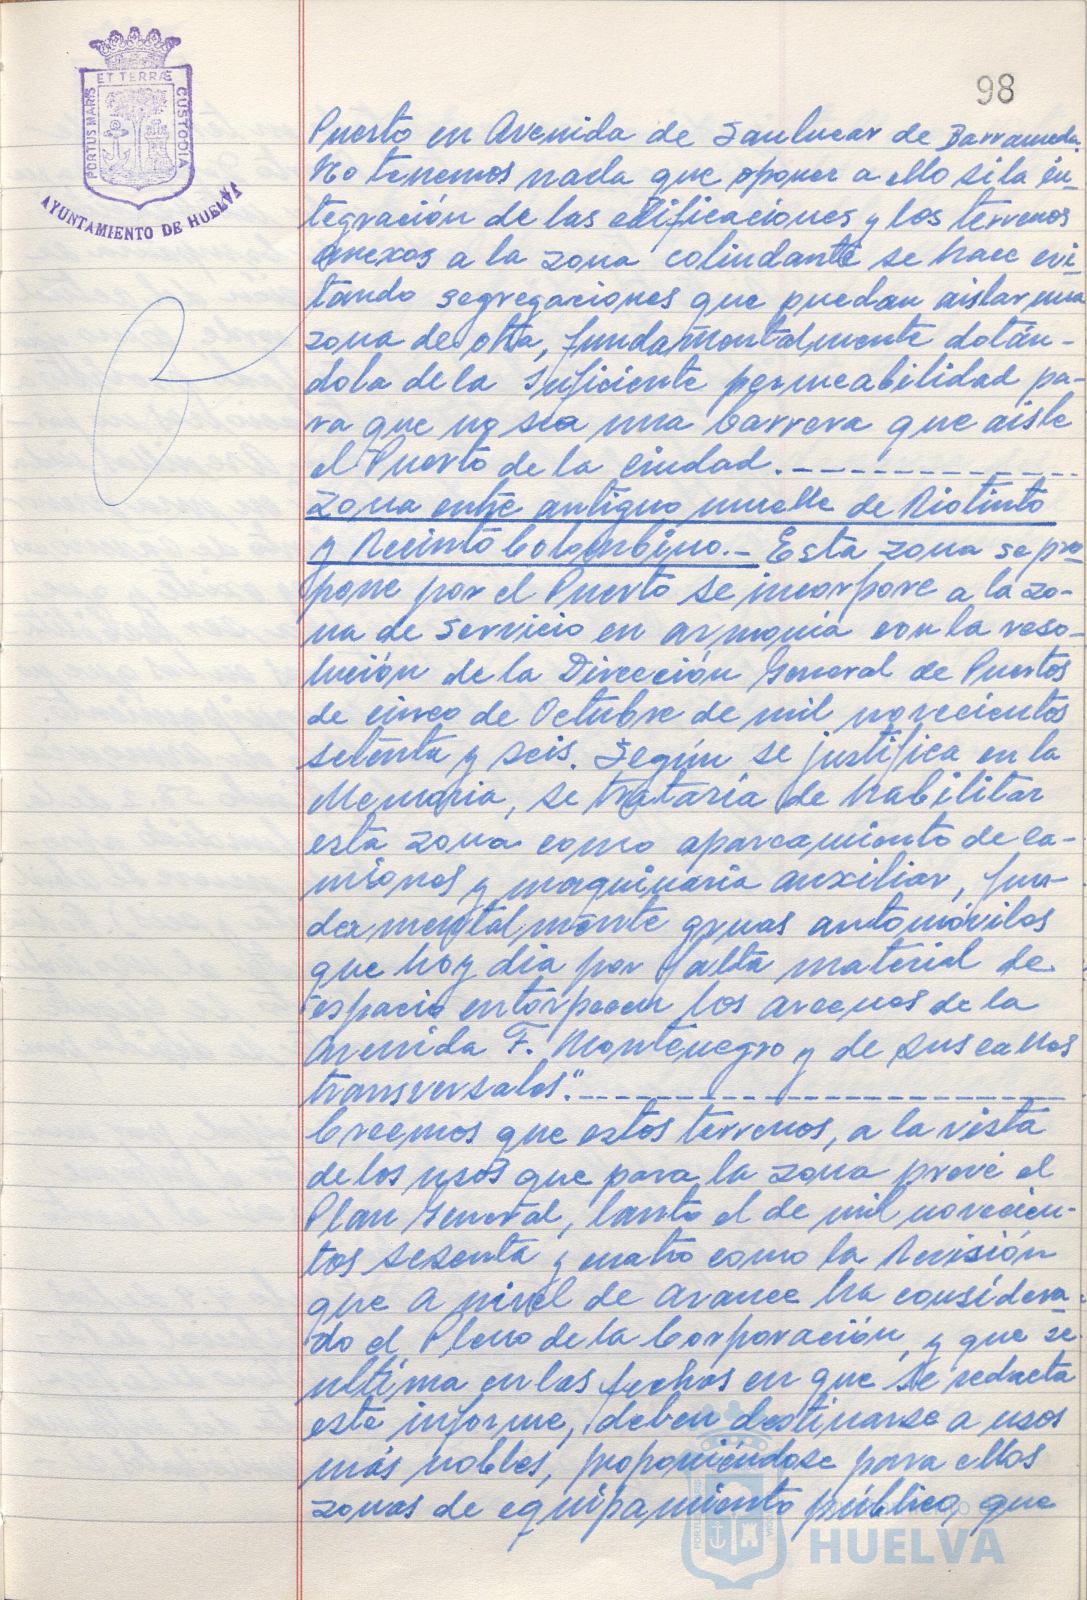 98
ET TERRÆ
PORTUS MARIS
CUSTODIA
AYUNTAMIENTO DE HUELVA
Puerto en Avenida de Sanlucar de Barrameda.
No tenemos nada que oponer a ello si la in-
tegración de las edificaciones y los terrenos
anexos a la zona colindante se hace evi-
tando segregaciones que puedan aislar una
zona de otra, fundamentalmente dotán-
dola de la suficiente permeabilidad pa-
ra que no sea una barrera que aisle
el Puerto de la ciudad.
Zona entre antiguo muelle de Riotinto
y Recinto Colombino.- Esta zona se pro-
pone por el Puerto se incorpore a la zo-
na de servicio en armonía con la reso-
lución de la Dirección General de Puertos
de cinco de Octubre de mil novecientos
setenta y seis. Según se justifica en la
Memoria, se trataría de habilitar
esta zona como aparcamiento de ca-
miones y maquinaria auxiliar, fun-
damentalmente gruas automóviles
que hoy dia por falta material de
espacio entorpecen los arcenes de la
Avenida F. Montenegro y de sus calles
transversales".
Creemos que estos terrenos, a la vista
de los usos que para la zona prevé el
Plan General, tanto el de mil novecien-
tos sesenta y cuatro como la Revisión
que a nivel de avance ha considera-
do el Pleno de la Corporación, y que se
ultima en las fechas en que se redacta
este informe, deben destinarse a usos
más nobles, proponiéndose para ellos
zonas de equipamiento público, que
HUELVA